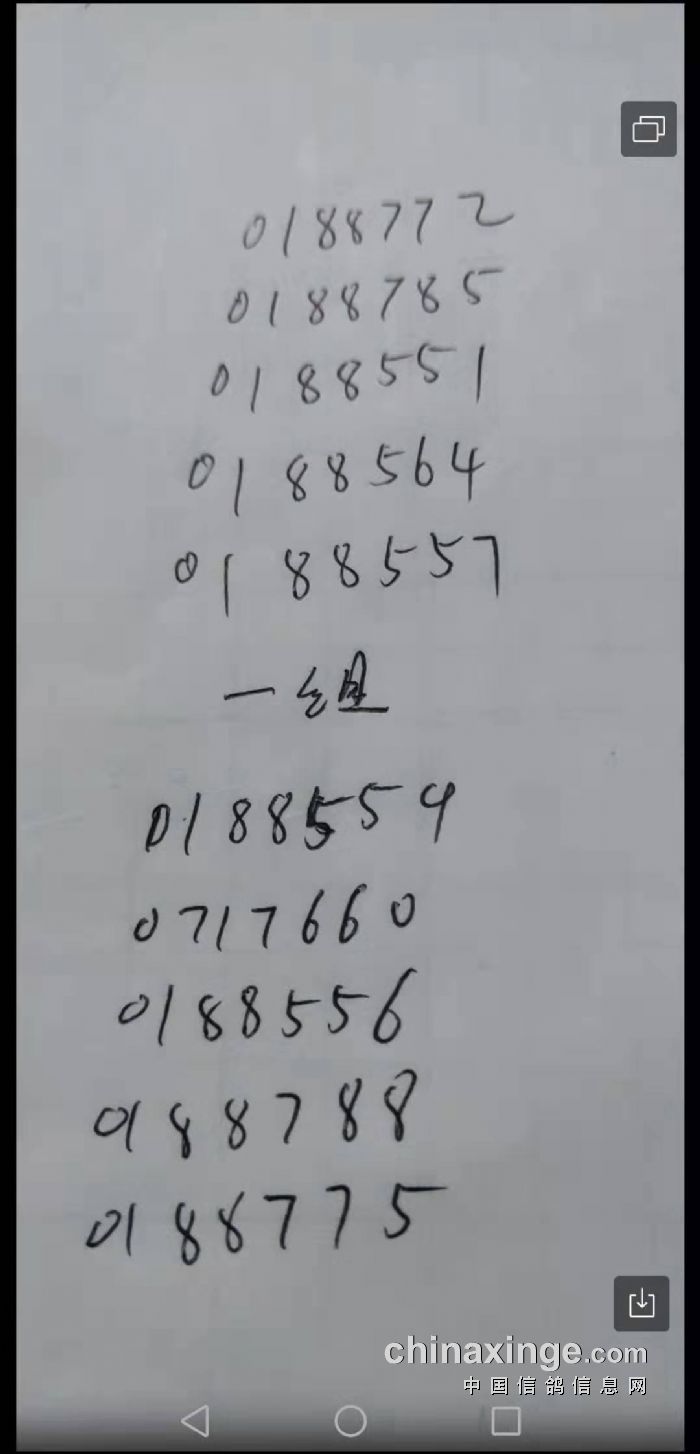 0188772
0188785
0188551
0188564
0188557
一组
0188559
0717660
0188556
0188788
0188775
chinaxinge.com
中国信鸽信息网